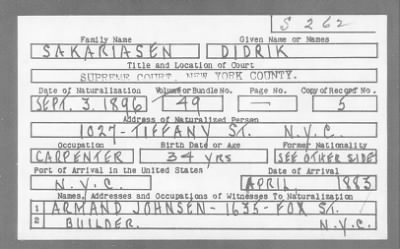 S 262
Family Name Given Name or Names
SAKARIASEN DIDRIK
Title and Location of Court
SUPREME COURT, NEW YORK COUNTY.
Date of Naturalization Volume or Bundle No. Page No. Copy of Record No.
SEPT. 3. 1896 49 — 5
Address of Naturalized Person
1027 - TIFFANY ST. N.Y.C.
Occupation Birth Date or Age Former Nationality
CARPENTER 34 YRS SEE OTHER SIDE
Port of Arrival in the United States Date of Arrival
N.Y.C. APRIL, 1883
Names, Addresses and Occupations of Witnesses To Naturalization
1 ARMAND JOHNSEN - 1635 - FOX ST.
2 BUILDER. N.Y.C.